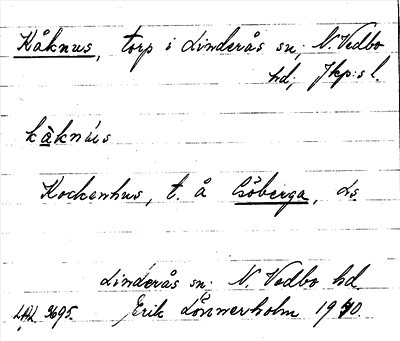 Kåknus, torp i Linderås sn; N. Vedbo
hd; Jkp:s l.
kåknùs
Kockenhus, t. å Esöberga, Ls.
Linderås sn. N. Vedbo hd.
LAL 3695. Erik Lönnerholm 1940.